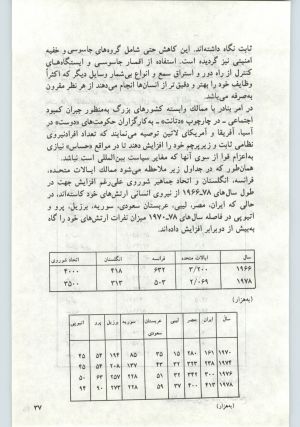 ثابت نگاه داشته‌اند. این کاهش حتی شامل گروه‌های جاسوسی و خفیه
امنیتی نیز گردیده است. استفاده از اقمار جاسوسی و ایستگاههای
کنترل از راه دور و استراق سمع و انواع بی‌شمار وسایل دیگر که اکثراً
وظایف خود را بهتر و دقیق‌تر از انسان‌ها انجام می‌دهند از هر نظر مقرون
به‌صرفه می‌باشد.
در امر بنادر یا ممالک وابسته کشورهای بزرگ به‌منظور جبران کمبود
اجتماعی ـ در چارچوب «تانت» ـ به‌کارگزاران حکومت‌های «دوست» در
آسیا، آفریقا و آمریکای لاتین توصیه می‌نمایند که تعداد افرادنیروی
نظامی ثابت و زیرپرچم خود را افزایش دهند تا در مواقع «حساس» نیازی
به‌اعزام قوا از سوی آنها که مغایر سیاست بین‌المللی است نباشد.
همان‌طور که در جداول زیر ملاحظه می‌شود ممالک ایالات متحده،
فرانسه، انگلستان و اتحاد جماهیر شوروی علی‌رغم افزایش جهت در
طول سال‌های ۷۸ـ۱۹۶۶ از نیروی انسانی ارتش‌های خود کاسته‌اند، در
حالی که ایران، مصر، لیبی، عربستان سعودی، سوریه، برزیل، پرو و
اتیوپی در فاصله سال‌های ۷۸ـ۱۹۷۰ میزان نفرات ارتش‌های خود را گاه
به‌بیش از دوبرابر افزایش داده‌اند.
سال ایالات متحده فرانسه انگلستان اتحاد شوروی
۱۹۶۶ ۳/۲۰۰ ۶۳۲ ۴۱۸ ۴۰۰۰
۱۹۷۸ ۲/۰۶۹ ۵۰۳ ۳۱۳ ۳۵۰۰
(به‌هزار)
سال ایران مصر لیبی عربستان سعودی سوریه برزیل پرو اتیوپی
۱۹۷۰ ۱۶۱ ۲۸۰ ۱۵ ۳۵ ۸۵ ۱۹۴ ۵۴ ۴۵
۱۹۷۴ ۲۳۸ ۳۲۳ ۳۲ ۴۳ ۱۳۷ ۲۰۸ ۵۴ ۴۵
۱۹۷۶ ۳۰۰ ۳۴۲ ۳۲ ۵۱ ۲۲۸ ۲۵۷ ۶۳ ۵۰
۱۹۷۸ ۴۱۳ ۴۰۰ ۳۷ ۵۹ ۲۲۸ ۲۷۳ ۹۰ ۹۴
(به‌هزار)
۳۷